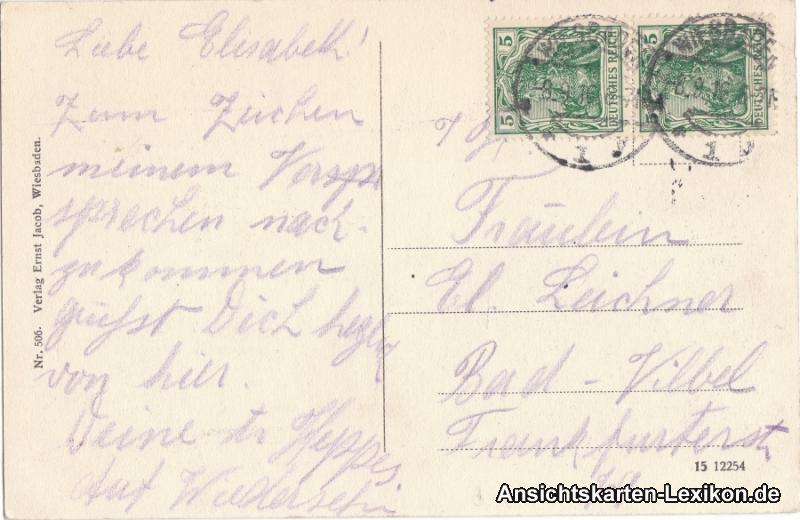 Liebe Elisabeth!
Zum Zeichen
meinem Versp
sprechen nach-
zukommen
grüsst Dich
von hier.
Deine
Auf Wiedersehn
Nr. 506. Verlag Ernst Jacob, Wiesbaden.
5 DEUTSCHES REICH 5
5 DEUTSCHES REICH 5
WIESBADEN
1
WIESBADEN
1
Fräulein
El. Leichner
Bad-Vilbel
Frankfurterst
15 12254
Ansichtskarten-Lexikon.de